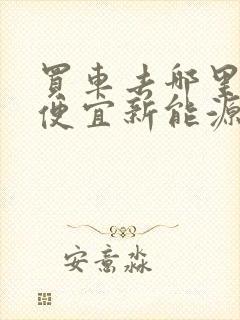 買車去哪里
便宜新能源
安意淼